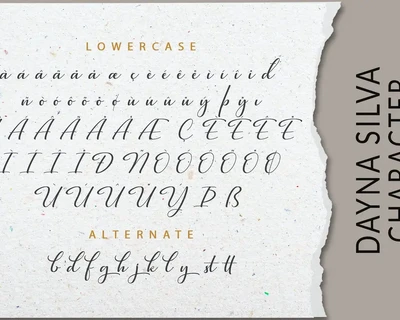 LOWERCASE
à á â ã ä å æ ç è é ê ë ì í î ï đ
ñ ò ó ô õ ö ù ú û ü ý þ ÿ ı
À Á Â Ã Ä Å Æ Ç È É Ê Ë
Ì Í Î Ï Ð Ñ Ò Ó Ô Õ Ö Ø
Ù Ú Û Ü Ý Þ ß
ALTERNATE
b d f g h j k l y st tt
DAYNA SILVA
CHARACTER